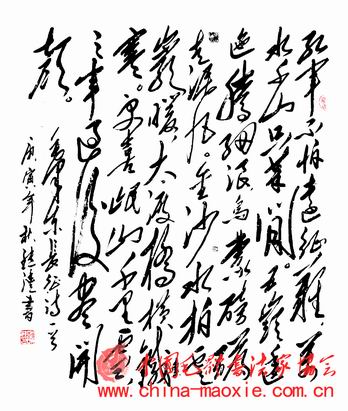 红军不怕远征难万
水千山只等闲五岭逶
迤腾细浪乌蒙磅礴
走泥丸。金沙水拍云
崖暖大渡桥横铁
寒。更喜岷山千里雪
三军过后尽开
颜。
毛泽东长征诗一首
庚寅年秋
书
中国毛体书法家协会
www.china-maoxie.com.cn